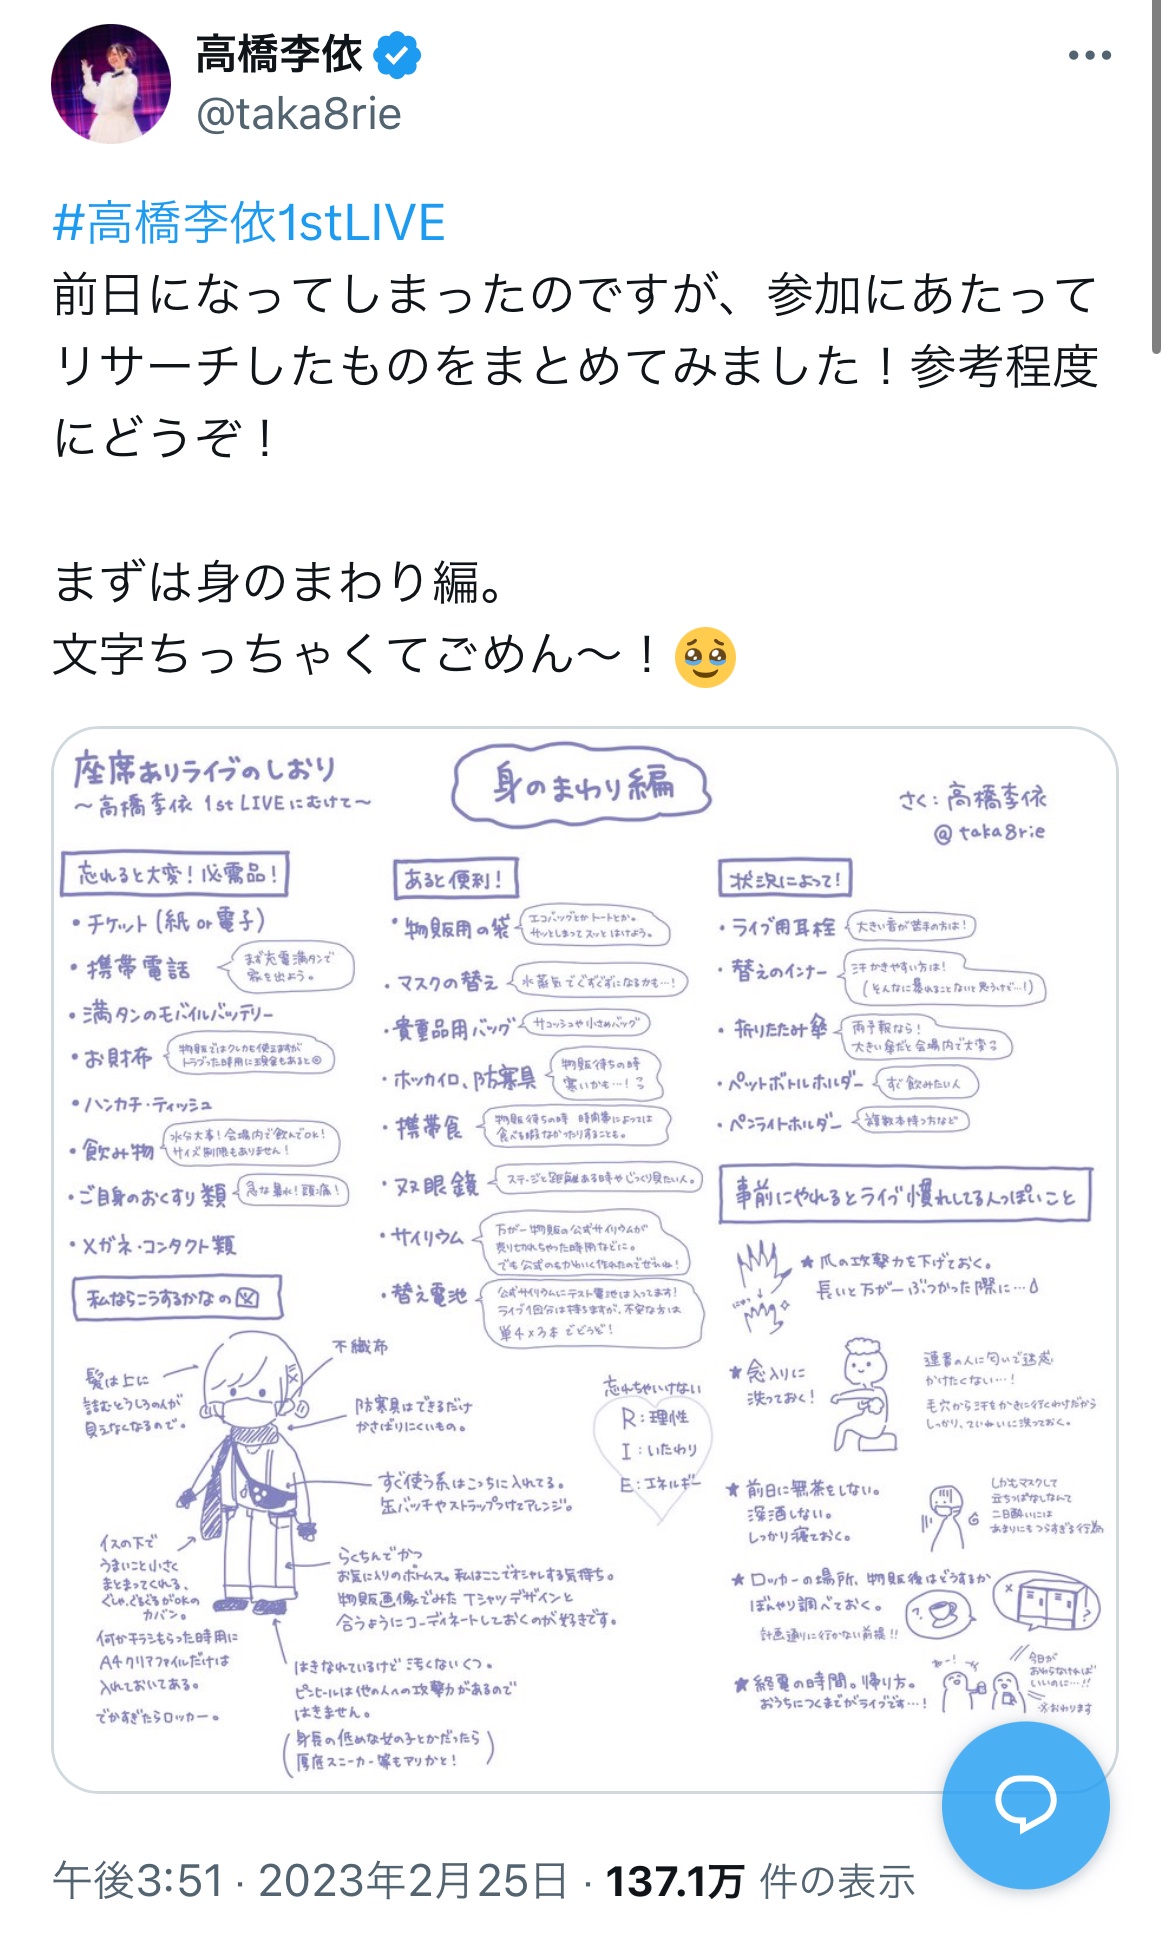 高橋李依
@taka8rie
#高橋李依1stLIVE
前日になってしまったのですが、参加にあたって
リサーチしたものをまとめてみました！参考程度
にどうぞ！
まずは身のまわり編。
文字ちっちゃくてごめん〜！🥹
座席ありライブのしおり
〜高橋李依 1st LIVEにむけて〜
身のまわり編
さく：高橋李依
@taka8rie
忘れると大変！必需品！
・チケット(紙or電子)
・携帯電話
まず充電満タンで
家を出よう。
・満タンのモバイルバッテリー
・お財布
物販ではクレカも使えますが
トラブった時用に現金もあると◎
・ハンカチ・ティッシュ
・飲み物
水分大事！会場内で飲んでOK！
サイズ制限もありません！
・ご自身のおくすり類
急な鼻水！頭痛！
・メガネ・コンタクト類
あると便利！
・物販用の袋
エコバッグとかトートとか。
サッとしまってスッとはけよう。
・マスクの替え
水蒸気でぐずぐずになるかも…！
・貴重品用バッグ
サコッシュや小さめバッグ
・ホッカイロ、防寒具
物販待ちの時
寒いかも…！
・携帯食
物販待ちの時 時間帯によっては
食べる暇なかったりすることも。
・双眼鏡
ステージと距離ある時やじっくり見たい人。
・サイリウム
万が一物販の公式サイリウムが
売り切れちゃった時用などに。
でも公式のもかわいく作れたのでぜひね！
・替え電池
公式サイリウムにテスト電池は入ってます！
ライブ1回分は持ちますが、不安な方は
単4×3本でどうぞ！
状況によって！
・ライブ用耳栓
大きい音が苦手の方は！
・替えのインナー
汗かきやすい方は！
(そんなに暴れることないと思うけど…！)
・折りたたみ傘
雨予報なら！
大きい傘だと会場内で大変
・ペットボトルホルダー
すぐ飲みたい人
・ペンライトホルダー
複数本持つ方など
事前にやれるとライブ慣れしてる人っぽいこと
★爪の攻撃力を下げておく。
長いと万が一ぶつかった際に…
★念入りに
洗っておく！
連番の人に匂いで迷惑
かけたくない…！
毛穴から汗をかきに行くわけだから
しっかり、ていねいに洗っておく。
★前日に無茶をしない。
深酒しない。
しっかり寝ておく。
しかもマスクして
立ちっぱなしなんて
二日酔いには
あまりにもつらすぎる行為
★ロッカーの場所、物販後はどうするか
ぼんやり調べておく。
計画通りに行かない前提!!
★終電の時間。帰り方。
おうちにつくまでがライブです…！
今日が
おわらなければ
いいのに…!!
※おわります
私ならこうするかなの図
髪は上に
詰むとうしろの人が
見えなくなるので。
不織布
防寒具はできるだけ
かさばりにくいもの。
すぐ使う系はこっちに入れてる。
缶バッチやストラップつけてアレンジ。
イスの下で
うまいこと小さく
まとまってくれる、
ぐしゃぐしゃがOKの
カバン。
何かチラシもらった時用に
A4クリアファイルだけは
入れておいてある。
でかすぎたらロッカー。
らくちんでかつ
お気に入りのボトムス。私はここでオシャレする気持ち。
物販画像でみたTシャツデザインと
合うようにコーディネートしておくのが好きです。
はきなれているけど汚くないくつ。
ピンヒールは他の人への攻撃力があるので
はきません。
(身長の低めな女の子とかだったら
厚底スニーカー等もアリかと！)
忘れちゃいけない
R：理性
I：いたわり
E：エネルギー
午後3:51 · 2023年2月25日 · 137.1万 件の表示